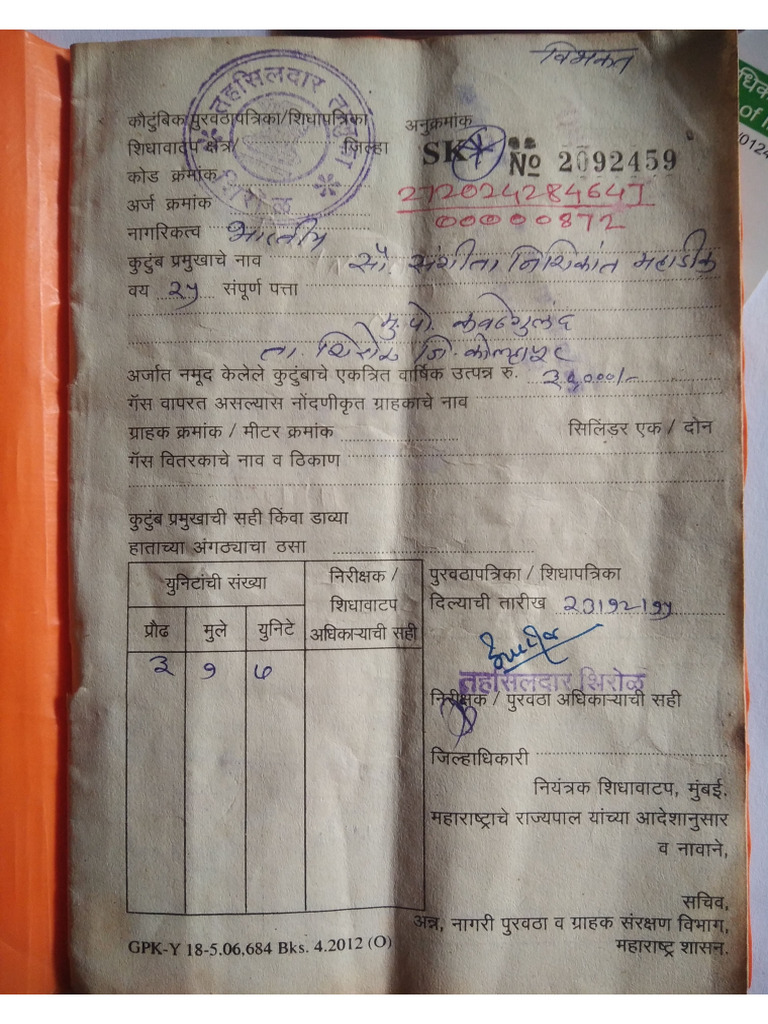 विभक्त
तहसिलदार तालुका शिरोळ
कौटुंबिक पुरवठापत्रिका/शिधापत्रिका
अनुक्रमांक
शिधावाटप क्षेत्र जिल्हा
SK No 2092459
कोड क्रमांक
272024284647
अर्ज क्रमांक
00000872
नागरिकत्व भारतीय
कुटुंब प्रमुखाचे नाव सौ. संगीता निशिकांत महाडीक
वय २५ संपूर्ण पत्ता
मु. पो. कवठेगुलंद
ता. शिरोळ जि. कोल्हापूर
अर्जात नमूद केलेले कुटुंबाचे एकत्रित वार्षिक उत्पन्न रु. ३५,०००/-
गॅस वापरत असल्यास नोंदणीकृत ग्राहकाचे नाव
ग्राहक क्रमांक / मीटर क्रमांक सिलिंडर एक / दोन
गॅस वितरकाचे नाव व ठिकाण
कुटुंब प्रमुखाची सही किंवा डाव्या
हाताच्या अंगठ्याचा ठसा
युनिटांची संख्या
निरीक्षक /
शिधावाटप
अधिकाऱ्याची सही
प्रौढ मुले युनिटे
३ १ ७
पुरवठापत्रिका / शिधापत्रिका
दिल्याची तारीख २३।१२।१५
तहसिलदार शिरोळ
निरीक्षक / पुरवठा अधिकाऱ्याची सही
जिल्हाधिकारी
नियंत्रक शिधावाटप, मुंबई.
महाराष्ट्राचे राज्यपाल यांच्या आदेशानुसार
व नावाने,
सचिव,
अन्न, नागरी पुरवठा व ग्राहक संरक्षण विभाग,
महाराष्ट्र शासन.
GPK-Y 18-5.06,684 Bks. 4.2012 (O)